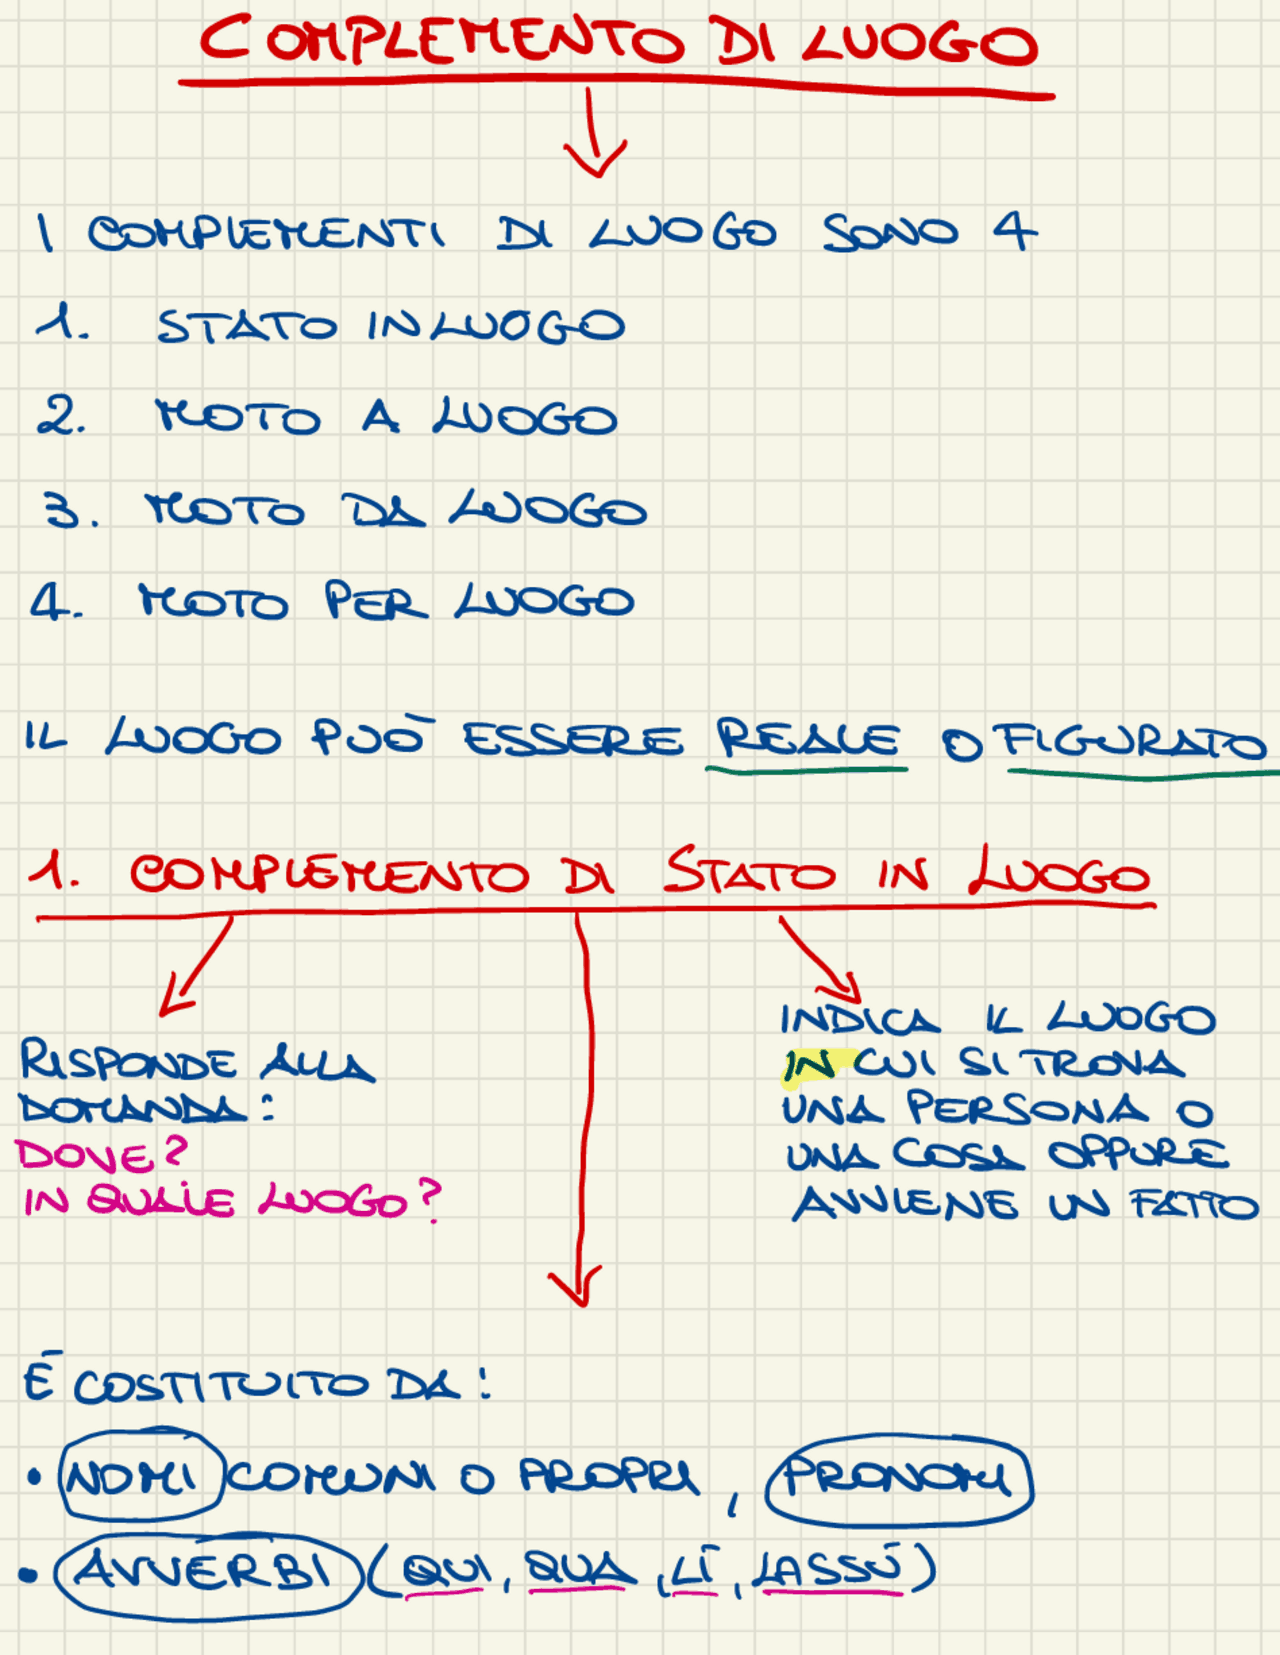 COMPLEMENTO DI LUOGO
I COMPLEMENTI DI LUOGO SONO 4
1. STATO IN LUOGO
2. MOTO A LUOGO
3. MOTO DA LUOGO
4. MOTO PER LUOGO
IL LUOGO PUÒ ESSERE REALE O FIGURATO
1. COMPLEMENTO DI STATO IN LUOGO
RISPONDE ALLA
DOMANDA:
DOVE?
IN QUALE LUOGO?
INDICA IL LUOGO
IN CUI SI TROVA
UNA PERSONA O
UNA COSA OPPURE
AVVIENE UN FATTO
È COSTITUITO DA:
• NOMI COMUNI O PROPRI, PRONOMI
• AVVERBI (QUI, QUA, LÌ, LASSÙ)